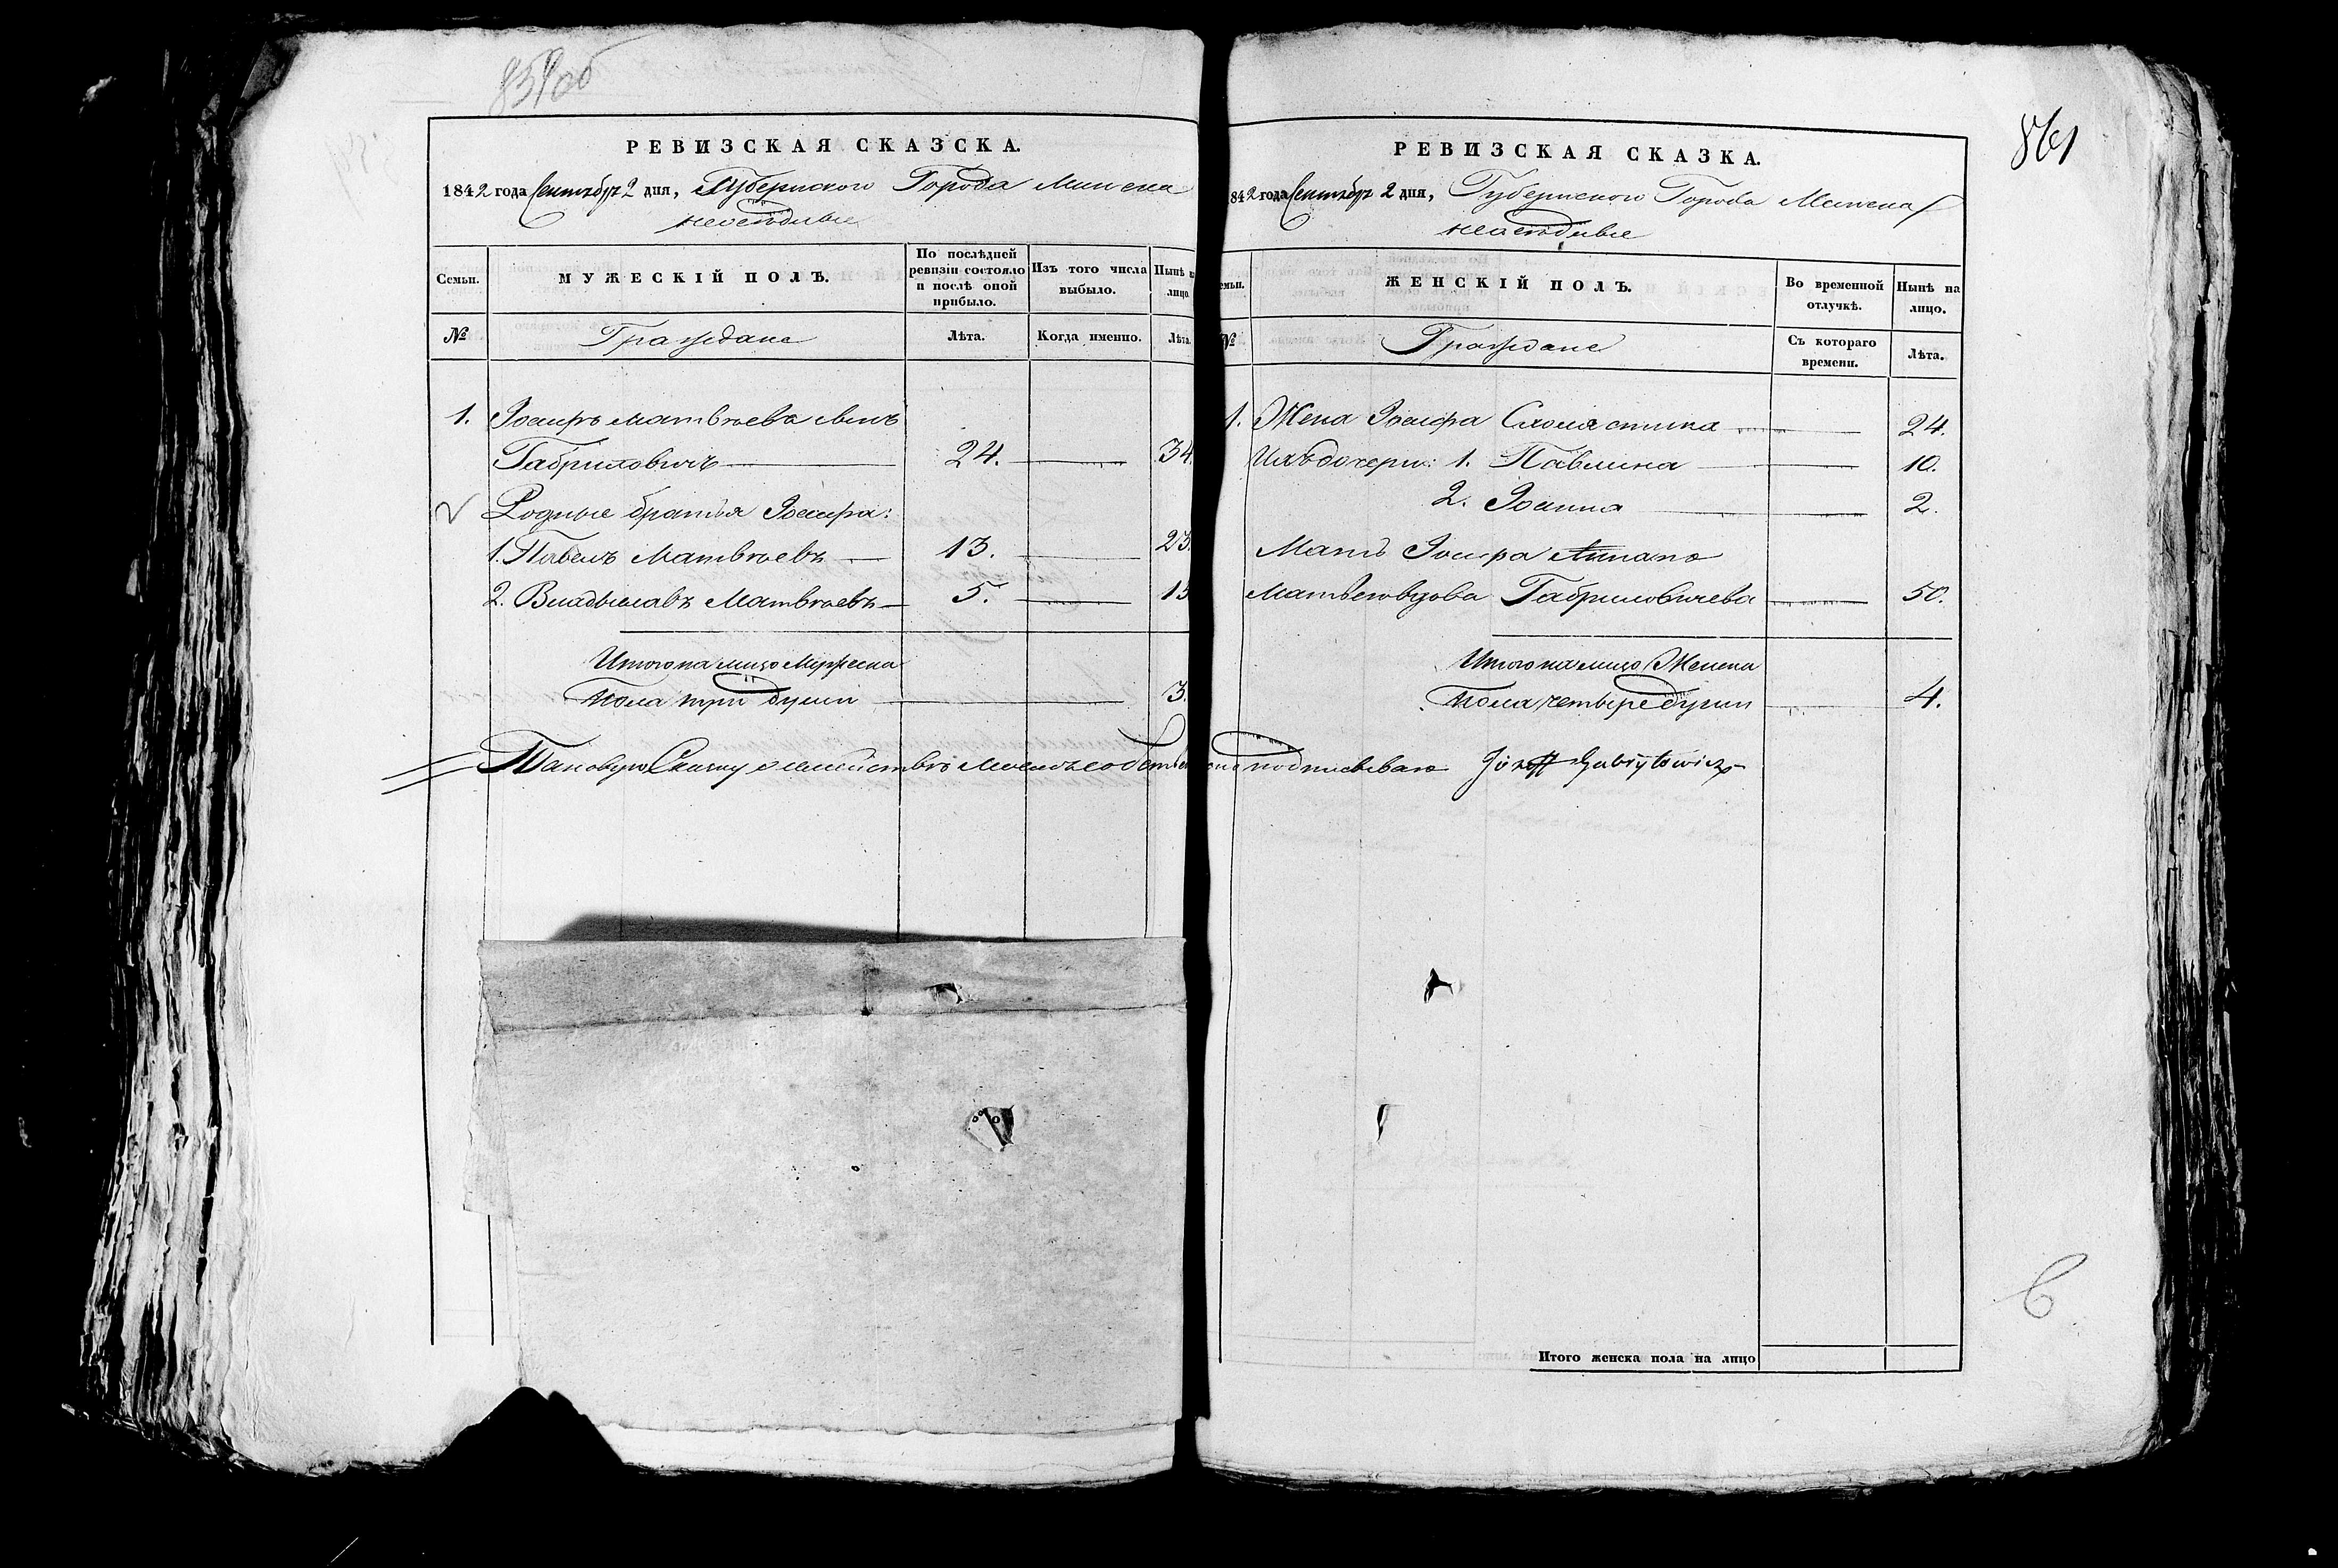 859об
РЕВИЗСКАЯ СКАЗСКА.
1842 года Сентября 2 дня, Губернскаго Города Минска
неоседлые
Семьи.
МУЖЕСКІЙ ПОЛЪ.
По послѣдней ревизіи состояло и послѣ оной прибыло.
Изъ того числа выбыло.
Нынѣ на лицо
№
Граждане
Лѣта.
Когда именно.
Лѣта.
1. Іосифъ Матвѣевъ сынъ
Габриловичъ 24. 34.
Родные братья Іосифа:
1. Павелъ Матвѣевъ 13. 23.
2. Владыславъ Матвѣевъ 5. 15
Итого на лицо Мужеска
Пола три души 3.
861
РЕВИЗСКАЯ СКАЗКА.
842 года Сентября 2 дня, Губернскаго Города Минска
неоседлые
емьи.
ЖЕНСКІЙ ПОЛЪ.
Во временной отлучкѣ.
Нынѣ на лицо.
№
Граждане
Съ котораго времени.
Лѣта.
1. Жена Іосифа Схоластика 24.
Ихъ дочери: 1. Павлина 10.
2. Іоанна 2.
Мать Іосифа
Матвеевдова Габриловичева 50.
Итого на лицо Женска
Пола четыре души 4.
Таковую Сказку о семействѣ моемъ собственно подписываю Józeff Gabryłowicz
Итого женска пола на лицо